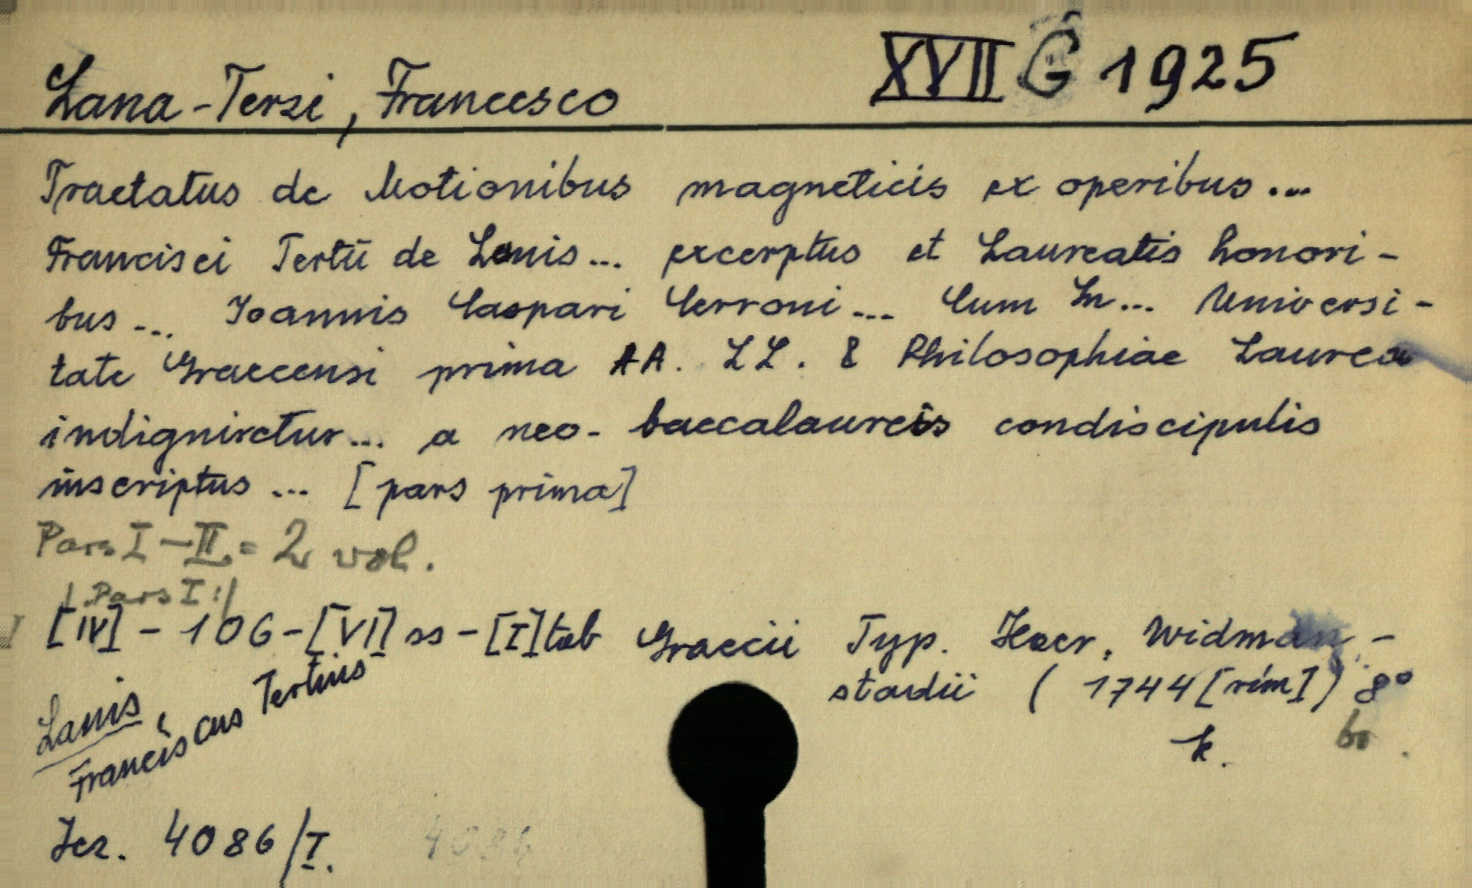 XVII G 1925
Lana-Terzi, Francesco
Tractatus de Motionibus magneticis ex operibus...
Francisci Tertii de Lanis... excerptus et Laureatis honori-
bus... Ioannis Caspari Cerroni... Cum In... Universi-
tate Graecensi prima AA. LL. & Philosophiae Laurea
indigniretur... a neo-baccalaureis condiscipulis
inscriptus... [pars prima]
Pars I-II = 2 vol.
/.Pars I:/
[IV] - 106 - [VI] ss - [I] tab Graecii Typ. Haer. Widman-
stadii (1744 [rim]) 8°
k. br.
Lanis,
Franciscus Tertius
Jez. 4086/I.